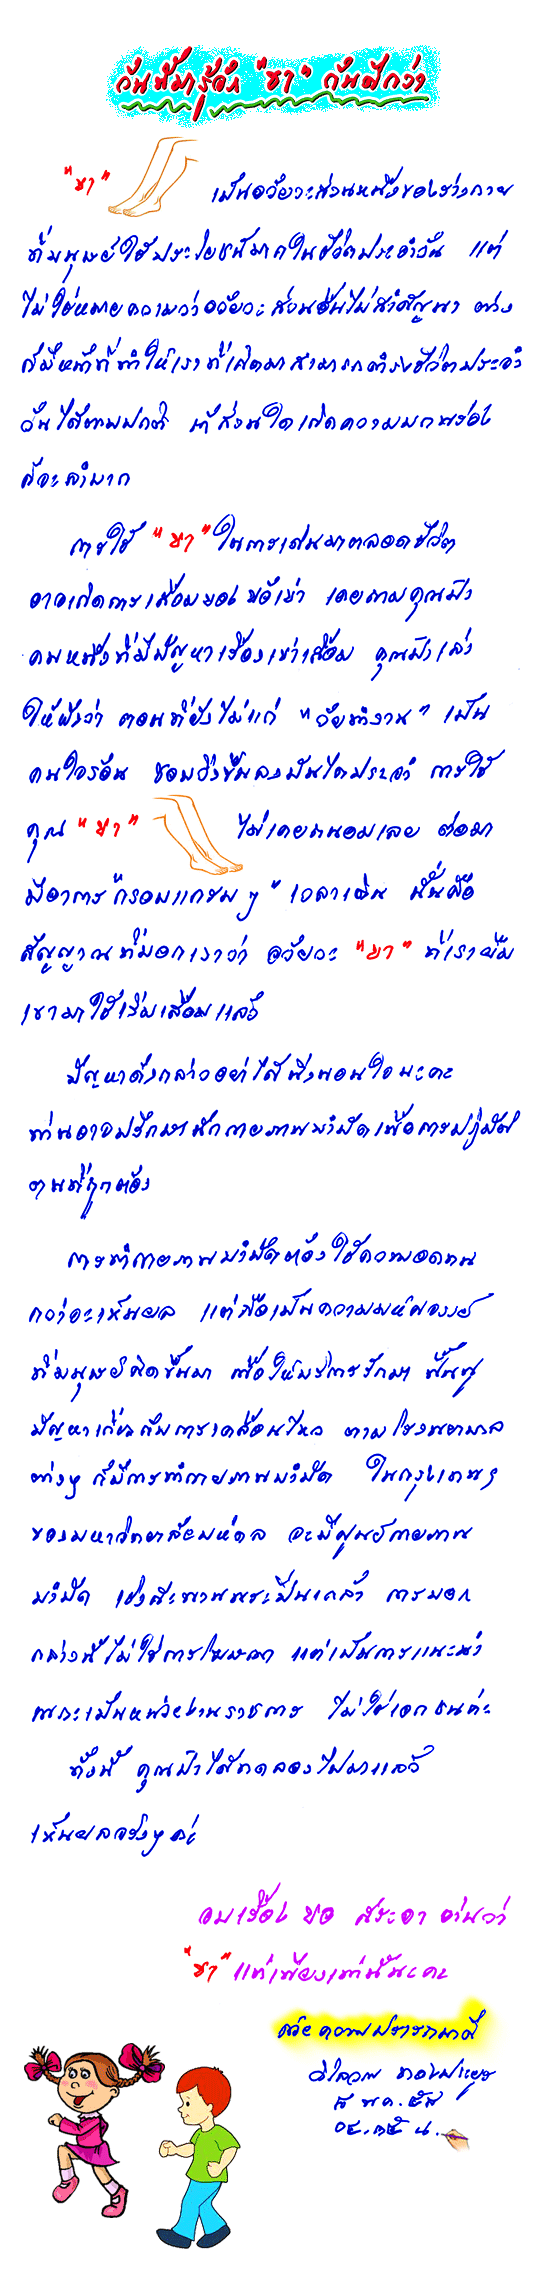 วันนี้มารู้จัก "ขา" กันดีกว่า
"ขา" เป็นอวัยวะส่วนหนึ่งของร่างกาย
ที่มนุษย์ใช้ประโยชน์มากในชีวิตประจำวัน แต่
ไม่ใช่หมายความว่าอวัยวะส่วนอื่นไม่สำคัญนา ต่าง
ก็มีหน้าที่ทำให้เราที่เกิดมาสามารถดำรงชีวิตประจำ
วันได้ตามปกติ ถ้าส่วนใดเกิดความบกพร่อง
ก็จะลำบาก
การใช้ "ขา" ในการเดินมาตลอดชีวิต
อาจเกิดการเสื่อมของข้อเข่า เคยถามคุณป้า
คนหนึ่งที่มีปัญหาเรื่องเข่าเสื่อม คุณป้าเล่า
ให้ฟังว่า ตอนที่ยังไม่แก่ "วัยทำงาน" เป็น
คนใจร้อน ชอบวิ่งขึ้นลงบันไดประจำ การใช้
คุณ "ขา" ไม่เคยถนอมเลย ต่อมา
มีอาการ "กรอบแกรบๆ" เวลาเดิน นั่นคือ
สัญญาณที่บอกเราว่า อวัยวะ "ขา" ที่เรายืม
เขามาใช้เริ่มเสื่อมแล้ว
ปัญหาดังกล่าวอย่าได้นิ่งนอนใจนะคะ
ท่านอาจปรึกษานักกายภาพบำบัดเพื่อการปฏิบัติ
ตนที่ถูกต้อง
การทำกายภาพบำบัดต้องใช้ความอดทน
กว่าจะเห็นผล แต่คือเป็นความมหัศจรรย์
ที่มนุษย์คิดขึ้นมา เพื่อให้มีการรักษา ฟื้นฟู
ปัญหาเกี่ยวกับการเคลื่อนไหว ตามโรงพยาบาล
ต่างๆ ก็มีการทำกายภาพบำบัด ในกรุงเทพฯ
ของมหาวิทยาลัยมหิดล จะมีศูนย์กายภาพ
บำบัด เชิงสะพานพระปิ่นเกล้า การบอก
กล่าวนี้ไม่ใช่การโฆษณา แต่เป็นการแนะนำ
เพราะเป็นหน่วยงานราชการ ไม่ใช่เอกชนค่ะ
ทั้งนี้ คุณป้าได้ทดลองไปมาแล้ว
เห็นผลจริงๆ ค่ะ
จบเรื่อง ขอ สระอา อ่านว่า
"ขา" แต่เพียงเท่านี้นะคะ
ด้วยความปรารถนาดี
๕ พ.ค. ๕๕